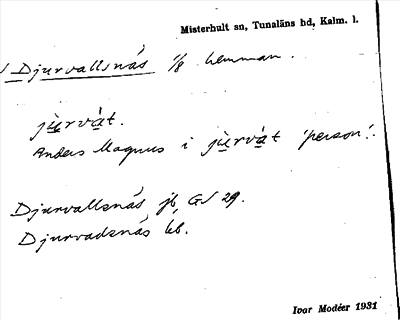 Misterhult sn, Tunaläns hd, Kalm. l.
Djurvallsnäs 1/8 hemman.
jùrvát.
Anders Magnus i jùrvát 'person'.
Djurvallsnäs jb GS 29.
Djurvadsnäs kb.
Ivar Modéer 1931